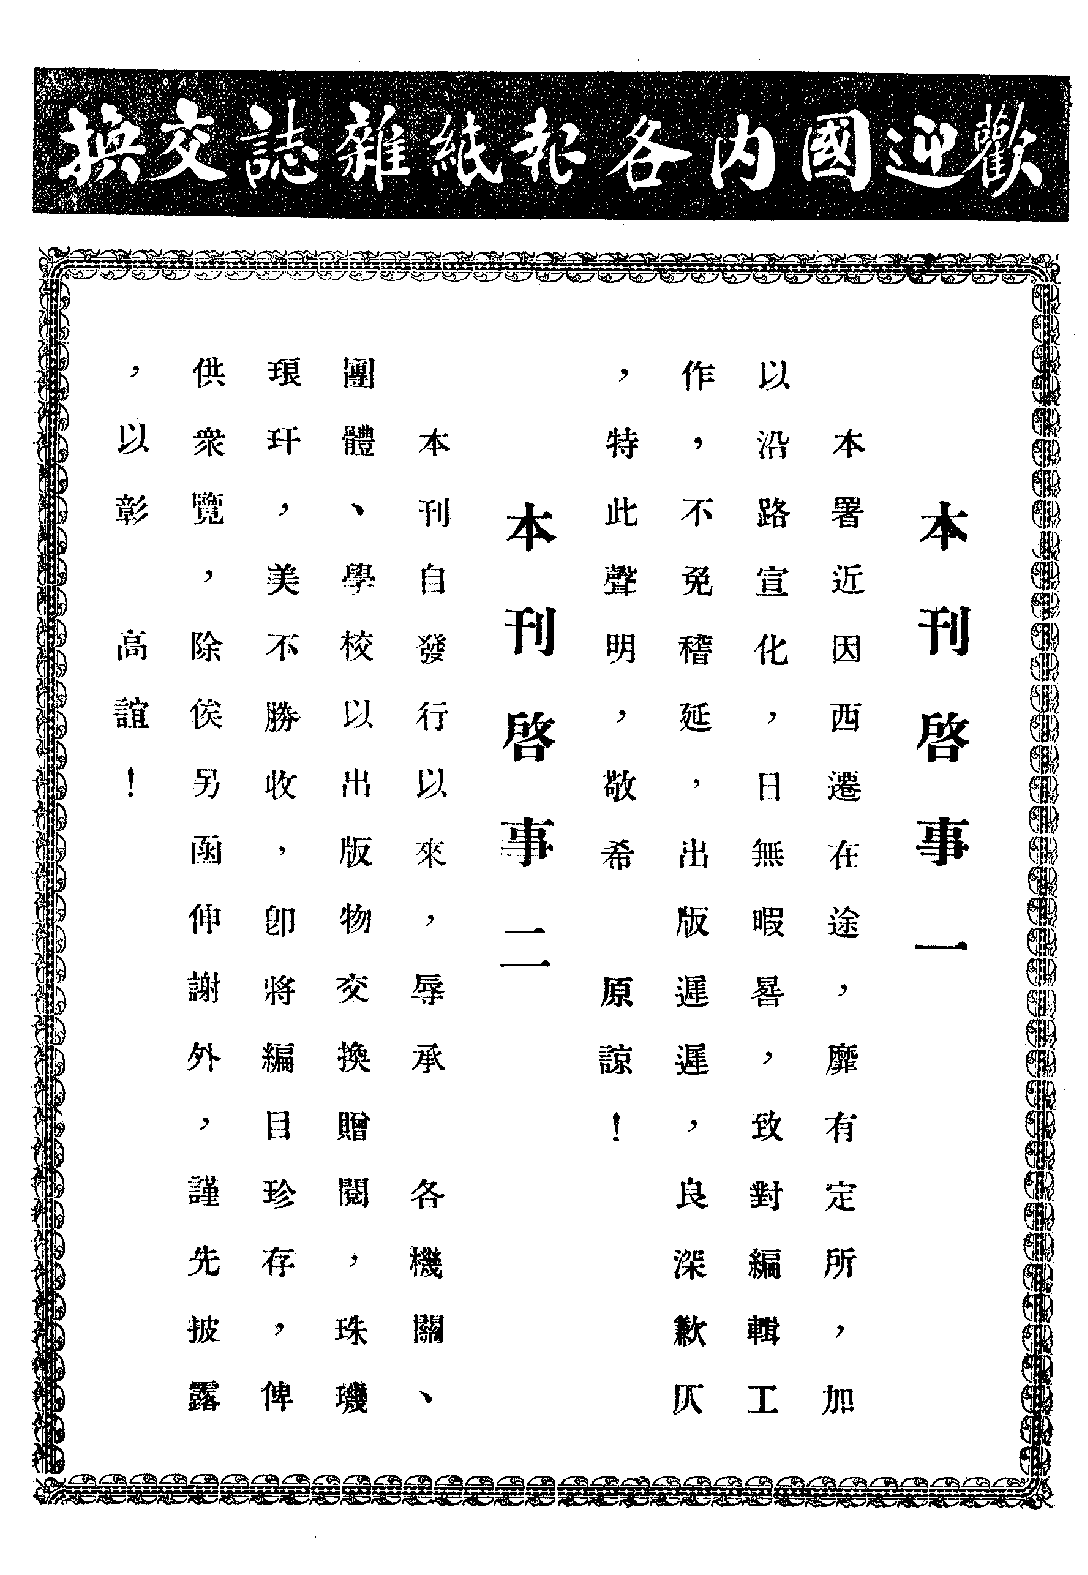 歡迎國內各報紙雜誌交換
本刊啓事一
本署近因西遷在途，靡有定所，加
以沿路宣化，日無暇晷，致對編輯工
作，不免稽延，出版遲遲，良深歉仄
，特此聲明，敬希　原諒！
本刊啓事二
本刊自發行以來，辱承　各機關、
團體、學校以出版物交換贈閱，珠璣
琅玕，美不勝收，卽將編目珍存，俾
供衆覽，除俟另函伸謝外，謹先披露
，以彰　高誼！